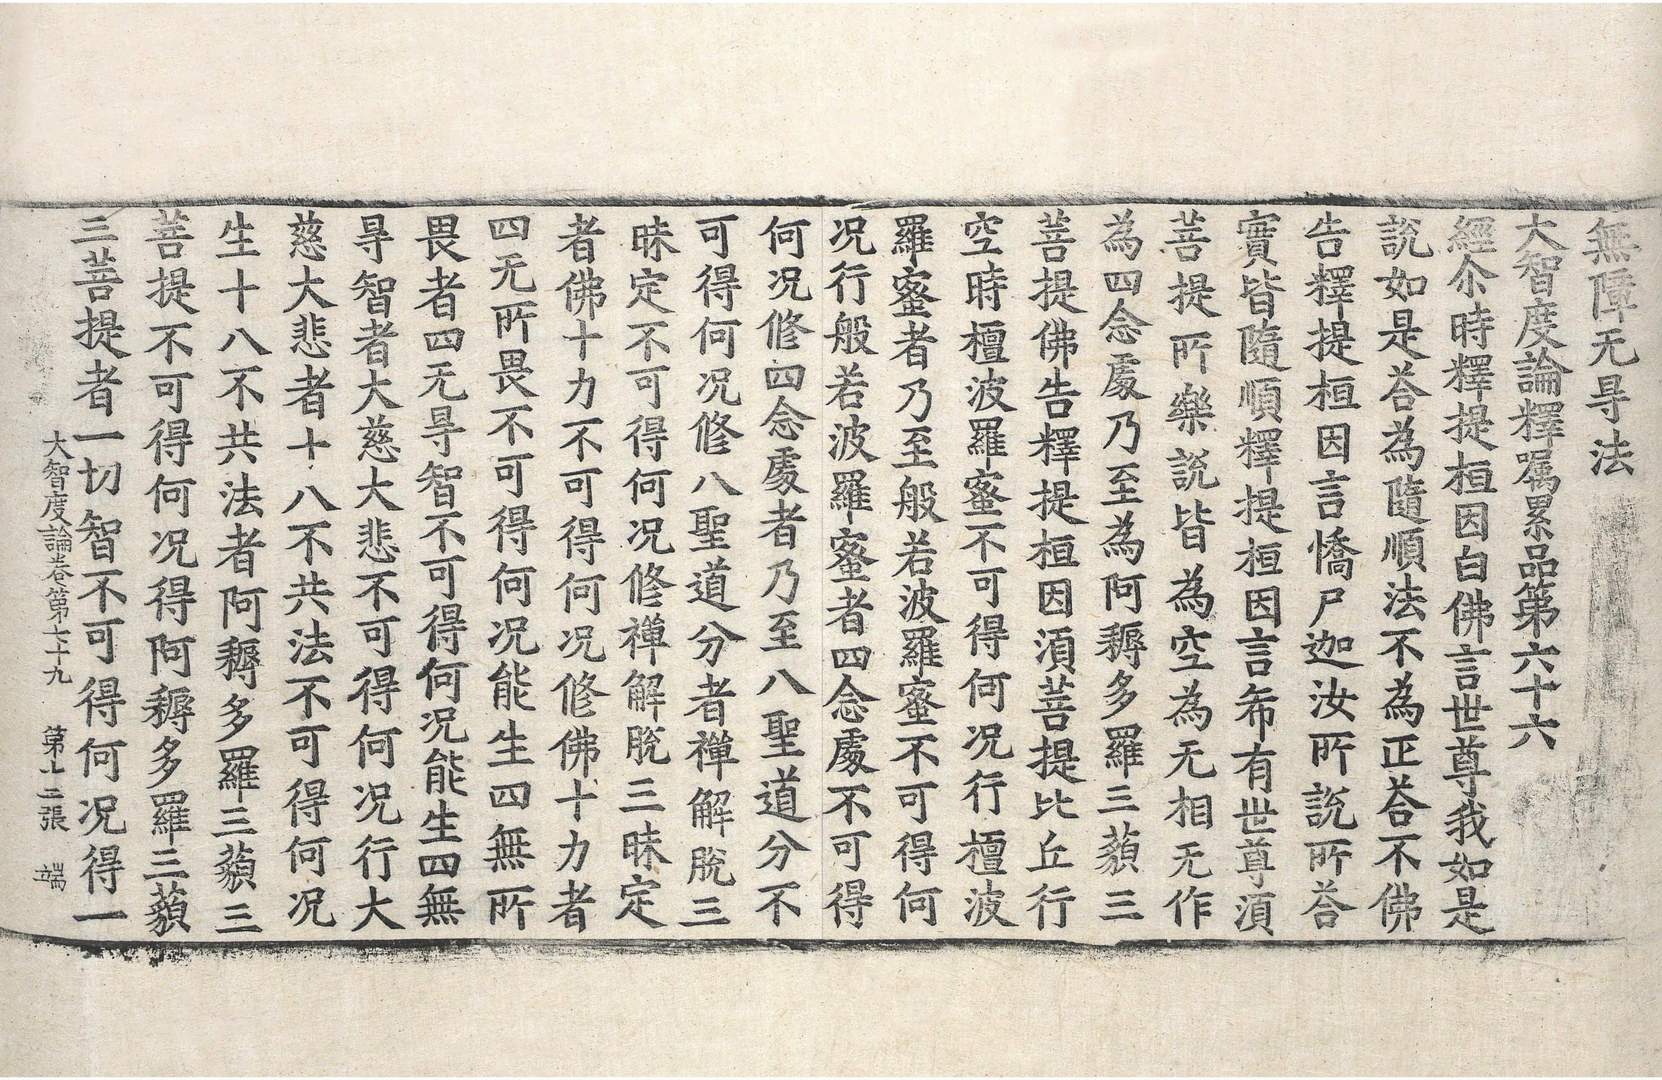 無障无㝵法
大智度論釋嘱累品第六十六
經尒時釋提桓因白佛言世尊我如是
説如是荅為隨順法不為正荅不佛
告釋提桓因言憍尸迦汝所説所荅
實皆隨順釋提桓因言希有世尊湏
菩提所樂説皆為空為无相无作
為四念處乃至為阿耨多羅三藐三
菩提佛告釋提桓因湏菩提比丘行
空時檀波羅蜜不可得何况行檀波
羅蜜者乃至般若波羅蜜不可得何
况行般若波羅蜜者四念處不可得
何况修四念處者乃至八聖道分不
可得何况修八聖道分者禪解脫三
昧定不可得何况修禪解脫三昧定
者佛十力不可得何况修佛十力者
四无所畏不可得何况能生四無所
畏者四无㝵智不可得何况能生四無
㝵智者大慈大悲不可得何况行大
慈大悲者十八不共法不可得何况
生十八不共法者阿耨多羅三藐三
菩提不可得何况得阿耨多羅三藐
三菩提者一切智不可得何况得一
大智度論卷第七十九 第十二張 端